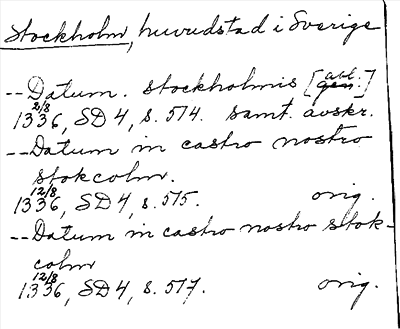 Stockholm, huvudstad i Sverige
-- Datum. stockholmis [abl.
gen.]
2/8
1336, SD 4, s. 574. samt. avskr.
-- Datum in castro nostro
stokcolm.
12/8
1336, SD 4, s. 575. orig.
-- Datum in castro nostro stok-
colm
12/8
1336, SD 4, s. 577. orig.